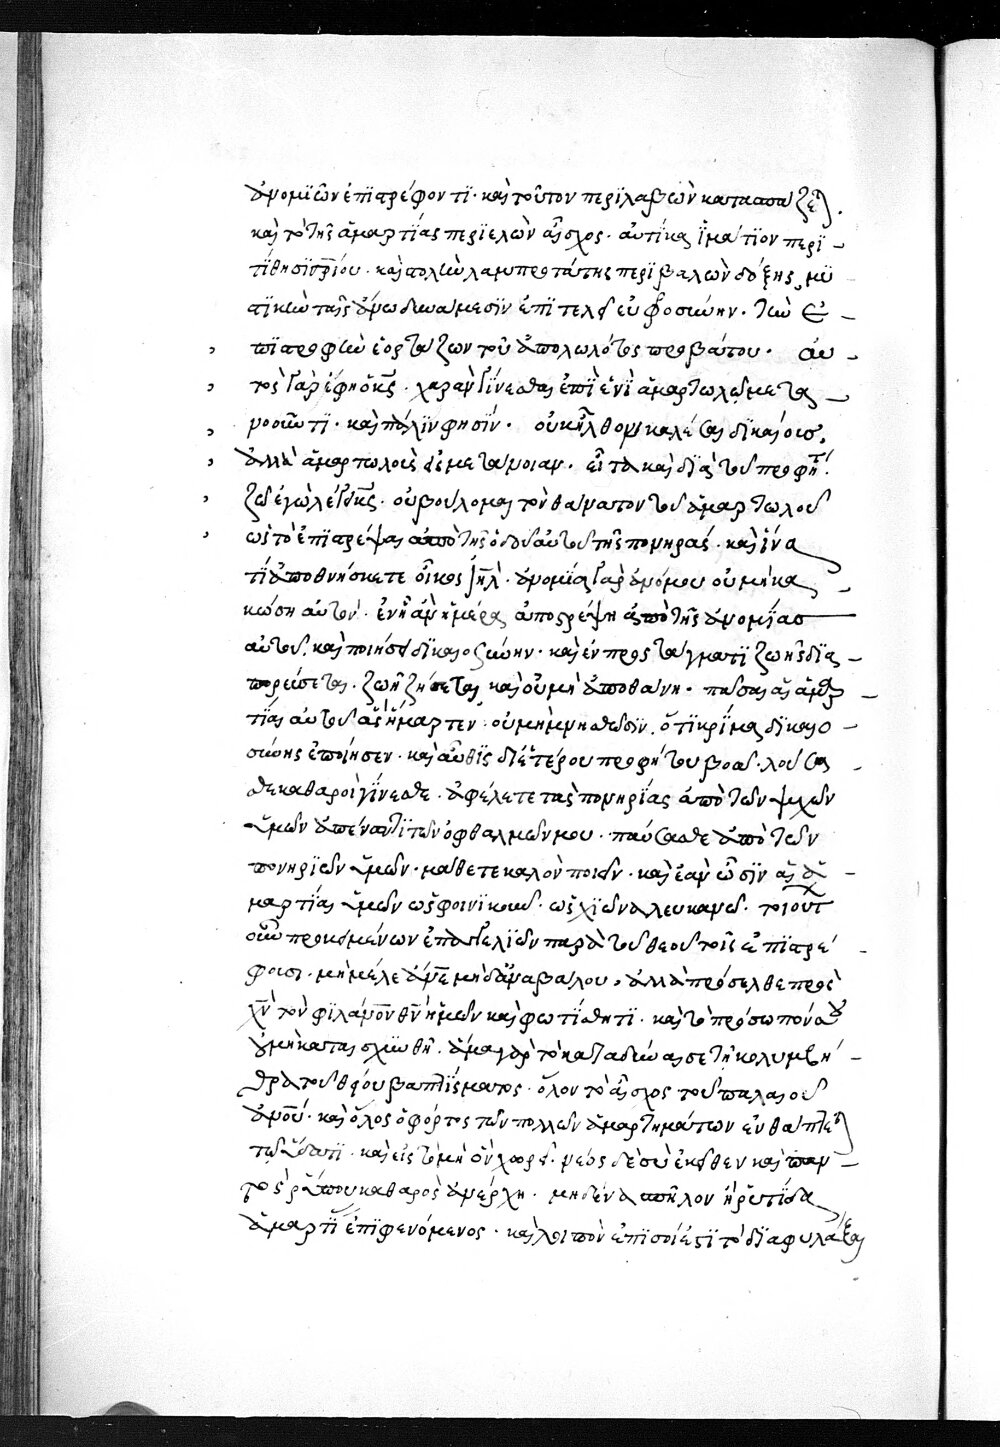 ἀνομιῶν ἐπιστρέφοντι· καὶ τοῦτον περιλαβὼν κατασπάζεται.
καὶ τὸ τῆς ἁμαρτίας περιελὼν αἶσχος· αὐτίκα ἱμάτιον περι-
τίθησι σωτηρίου· καὶ στολὴν λαμπροτάτης περιβαλὼν δόξης, μυ-
στικὴν ταῖς ἄνω δυνάμεσιν ἐπιτελεῖ εὐφροσύνην· τὴν ἐ-
πιστροφὴν ἑορτάζων τοῦ ἀπολωλότος προβάτου· αὐ-
τὸς γὰρ ἔφη ὁ κς· χαρὰν γίνεσθαι ἐπὶ ἑνὶ ἁμαρτωλῷ μετα-
νοοῦντι· καὶ πάλιν φησίν· οὐκ ἦλθον καλέσαι δικαίους,
ἀλλὰ ἁμαρτωλοὺς εἰς μετάνοιαν· εἶτα καὶ διὰ τοῦ προφήτ
ζῶ ἐγὼ λέγει κς· οὐ βούλομαι τὸν θάνατον τοῦ ἁμαρτωλοῦ
ὡς τὸ ἐπιστρέψαι ἀπὸ τῆς ὁδοῦ αὐτοῦ τῆς πονηρᾶς· καὶ ἵνα
τί ἀποθνήσκετε οἶκος ιηλ· ἀνομία γὰρ ἀνόμου οὐ μὴ κα-
κώσῃ αὐτόν· ἐν ᾗ ἂν ἡμέρᾳ ἀποστρέψῃ ἀπὸ τῆς ἀνομίας
αὐτοῦ, καὶ ποιήσῃ δικαιοσύνην· καὶ ἐν προστάγματι ζωῆς δια-
πορεύσεται· ζωῇ ζήσεται καὶ οὐ μὴ ἀποθάνῃ· πᾶσαι αἱ ἁμαρ-
τίαι αὐτοῦ ἃς ἥμαρτεν· οὐ μὴ μνησθῶσιν, ὅτι κρίμα δικαιο-
σύνης ἐποίησεν· καὶ αὖθις δι' ἑτέρου προφήτου βοᾷ· λούσα-
σθε καθαροὶ γίνεσθε· ἀφέλετε τὰς πονηρίας ἀπὸ τῶν ψυχῶν
ὑμῶν ἀπέναντι τῶν ὀφθαλμῶν μου· παύσασθε ἀπὸ τῶν
πονηριῶν ὑμῶν· μάθετε καλὸν ποιεῖν· καὶ ἐὰν ὦσιν αἱ ἁ-
μαρτίαι ὑμῶν ὡς φοινικοῦν· ὡς χιόνα λευκανῶ· τοιούτ
οὖν προκειμένων ἐπαγγελιῶν παρὰ τοῦ θεοῦ τοῖς ἐπιστρέ-
φουσι· μὴ μέλλε ἄνε μηδὲ ἀναβάλου, ἀλλὰ πρόσελθε πρὸς
χν τὸν φιλάνον θν ἡμῶν καὶ φωτίσθητι· καὶ τὸ πρόσωπόν σου
οὐ μὴ καταισχυνθῇ· ἅμα γὰρ τὸ καταδῦναί σε τῇ κολυμβή-
θρᾳ τοῦ θείου βαπτίσματος· ὅλον τὸ αἶσχος τοῦ παλαιοῦ
ἀνου· καὶ ὅλος ὁ φόρτος τῶν πολλῶν ἁμαρτημάτων ἐνθάπτεται
τῷ ὕδατι· καὶ εἰς τὸ μὴ ὂν χωρεῖ· νέος δὲ σὺ ἐκεῖθεν καὶ παν-
τὸς ῥύπου καθαρὸς ἀνέρχῃ· μηδένα σπῖλον ἢ ῥυτίδα
ἁμαρτίας ἐπιφερόμενος· καὶ λοιπὸν ἐπὶ σοί ἐστι τὸ διαφυλάξαι